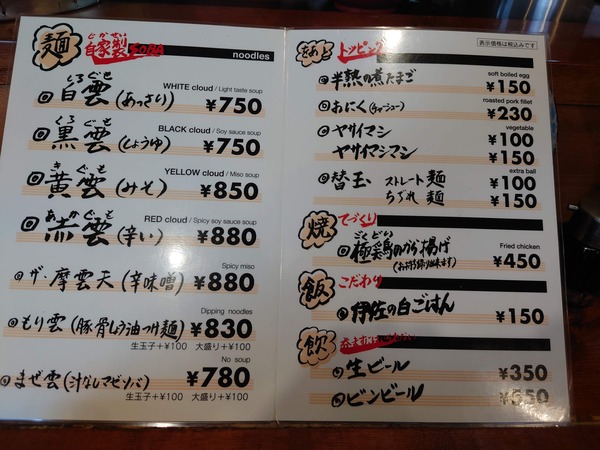 麺
じかせい
自家製 SOBA
noodles
しろぐも
WHITE cloud / Light taste soup
白雲(あっさり) ¥750
くろぐも
BLACK cloud / Soy sauce soup
黒雲(しょうゆ) ¥750
きぐも
YELLOW cloud / Miso soup
黄雲(みそ) ¥850
あかぐも
RED cloud / Spicy soy sauce soup
赤雲(辛い) ¥880
Spicy miso
ザ・摩雲天(辛味噌) ¥880
Dipping noodles
もり雲(豚骨しょう油つけ麺) ¥830
生玉子+¥100 大盛り+¥100
No soup
まぜ雲(汁なしマゼソバ) ¥780
生玉子+¥100 大盛り+¥100
表示価格は税込みです
トッピング
soft boiled egg
半熟の煮たまご ¥150
roasted pork fillet
おにく(チャーシュー) ¥230
vegetable
ヤサイマシ ¥100
ヤサイマシマシ ¥150
extra ball
替玉 ストレート麺 ¥100
ちぢれ麺 ¥150
焼
てづくり
ごくどり
極鶏のから揚げ
Fried chicken
¥450
(お持ち帰り出来ます)
飯
こだわり
伊佐の白ごはん ¥150
飲
生ビール ¥350
ビンビール ¥550